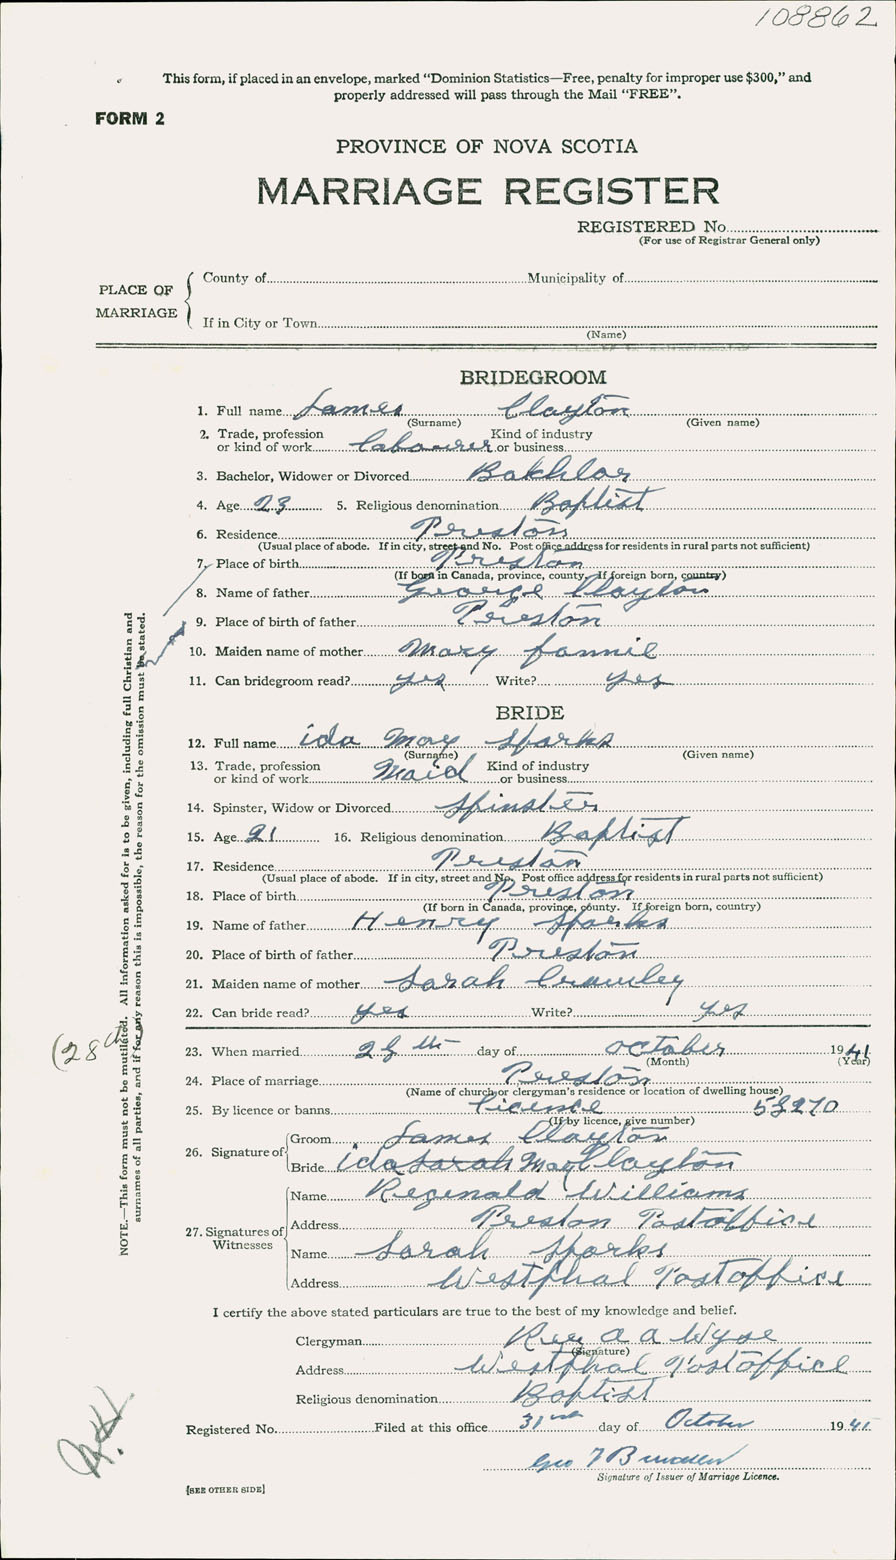 108862
This form, if placed in an envelope, marked “Dominion Statistics—Free, penalty for improper use $300,” and
properly addressed will pass through the Mail “FREE”.
FORM 2
PROVINCE OF NOVA SCOTIA
MARRIAGE REGISTER
REGISTERED No.
(For use of Registrar General only)
PLACE OF MARRIAGE
County of Municipality of
If in City or Town
(Name)
BRIDEGROOM
1. Full name James Clayton
(Surname) (Given name)
2. Trade, profession or kind of work labourer Kind of industry or business
3. Bachelor, Widower or Divorced Bakhlor
4. Age 23 5. Religious denomination Baptist
6. Residence Preston
(Usual place of abode. If in city, street and No. Post office address for residents in rural parts not sufficient)
7. Place of birth Preston
(If born in Canada, province, county. If foreign born, country)
8. Name of father George Clayton
9. Place of birth of father Preston
10. Maiden name of mother Mary fannie
11. Can bridegroom read? yes Write? yes
BRIDE
12. Full name ida May Sparks
(Surname) (Given name)
13. Trade, profession or kind of work Maid Kind of industry or business
14. Spinster, Widow or Divorced Spinster
15. Age 21 16. Religious denomination Baptist
17. Residence Preston
(Usual place of abode. If in city, street and No. Post office address for residents in rural parts not sufficient)
18. Place of birth Preston
(If born in Canada, province, county. If foreign born, country)
19. Name of father Henry Sparks
20. Place of birth of father Preston
21. Maiden name of mother Sarah Crawley
22. Can bride read? yes Write? yes
(28th)
23. When married 28 th day of october 1941
(Month) (Year)
24. Place of marriage Preston
(Name of church or clergyman's residence or location of dwelling house)
25. By licence or banns licence
(If by licence, give number)
26. Signature of
Groom James Clayton
Bride ida Sarah May Clayton
27. Signatures of Witnesses
Name Regenald Williams
Address Preston Postoffice
Name Sarah Sparks
Address Westphal Postoffice
I certify the above stated particulars are true to the best of my knowledge and belief.
Clergyman Rev a a Wyse
(Signature)
Address Westphal Postoffice
Religious denomination Baptist
Registered No. Filed at this office 31 day of October 1941
Geo
Signature of Issuer of Marriage Licence.
[SEE OTHER SIDE]
NOTE.—This form must not be mutilated. All information asked for is to be given, including full Christian and
surnames of all parties, and if for any reason this is impossible, the reason for the omission must be stated.